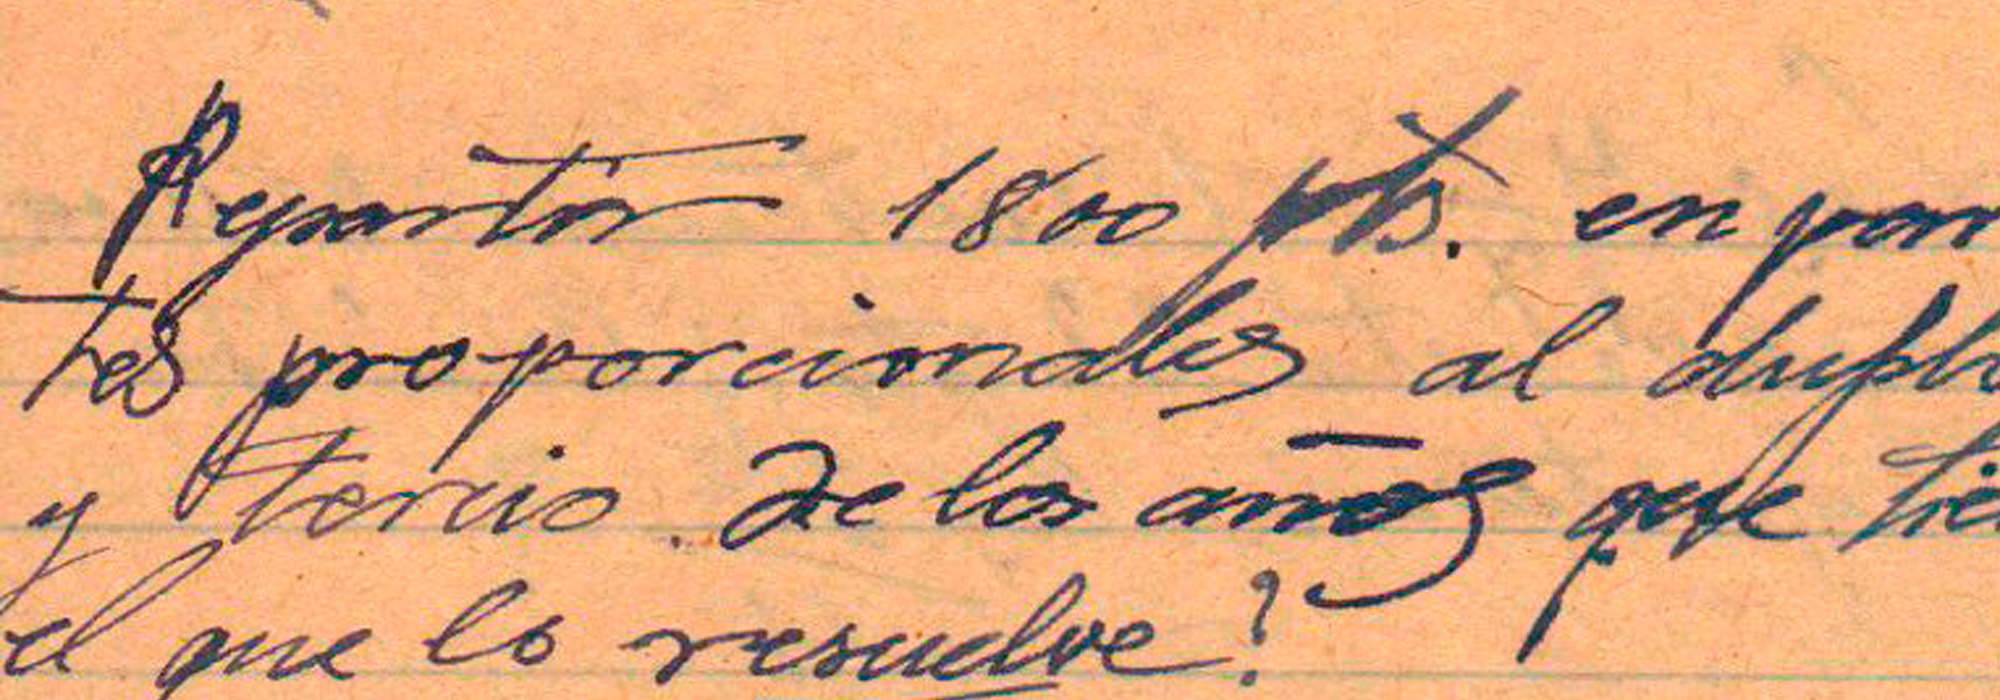 Repartir 1800 pts. en par
tes proporcionales al duplo
y tercio de los años que tie
el que lo resuelve?